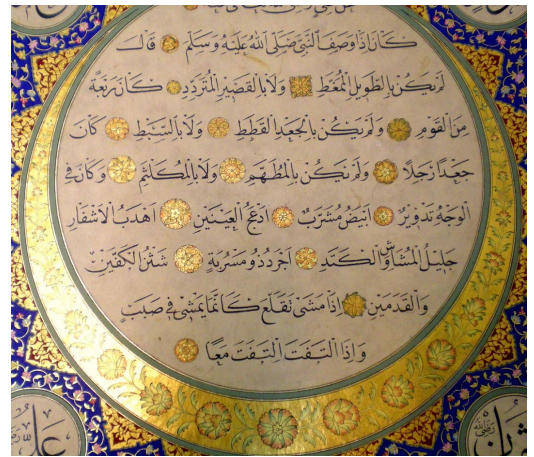 كَانَ اِذَا وَصَفَ النَّبِيَّ صَلَّى اللهُ عَلَيْهِ وَسَلَّمَ قَالَ
لَمْ يَكُنْ بِالطَّوِيلِ الْمُمَّغِطِ وَلَا بِالْقَصِيرِ الْمُتَرَدِّدِ كَانَ رَبْعَةً
مِنَ الْقَوْمِ وَلَمْ يَكُنْ بِالْجَعْدِ الْقَطَطِ وَلَا بِالسَّبْطِ كَانَ
جَعْدًا رَجِلًا وَلَمْ يَكُنْ بِالْمُطَهَّمِ وَلَا بِالْمُكَلْثَمِ وَكَانَ فِي
الْوَجْهِ تَدْوِيرٌ اَبْيَضُ مُشْرَبٌ اَدْعَجُ الْعَيْنَيْنِ اَهْدَبُ الْاَشْفَارِ
جَلِيلُ الْمُشَاشِ وَالْكَتَدِ اَجْرَدُ ذُو مَسْرُبَةٍ شَثْنُ الْكَفَّيْنِ
وَالْقَدَمَيْنِ اِذَا مَشَى تَقَلَّعَ كَاَنَّمَا يَمْشِي فِي صَبَبٍ
وَاِذَا الْتَفَتَ الْتَفَتَ مَعًا